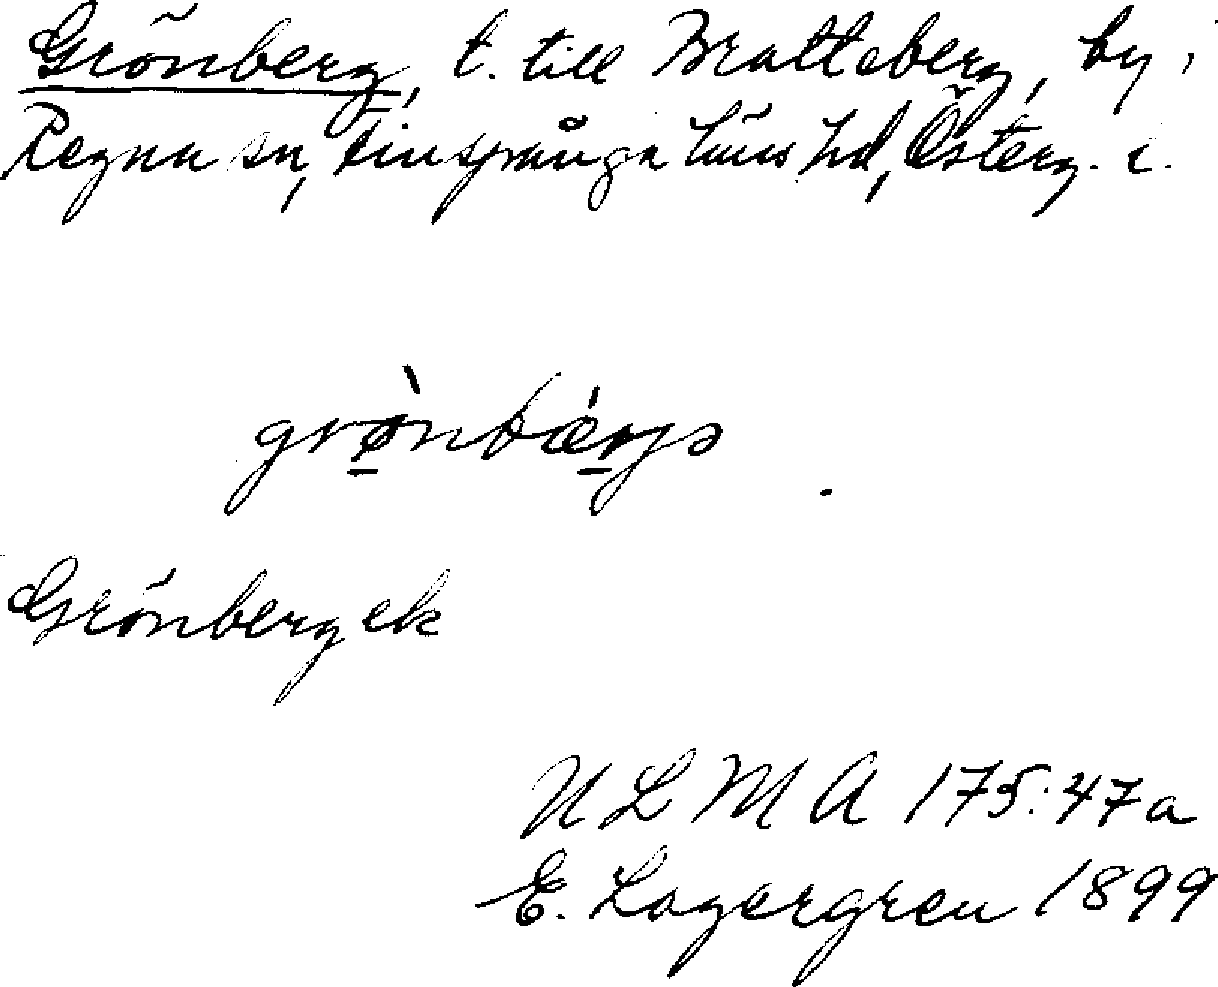 Grönberg, t. till Bratteberg, by i
Regna sn, Finspånga läns hd, Österg. l.
grø̀nbǽrjə
Grönberg ek
ULMA 175:47a
E. Lagergren 1899